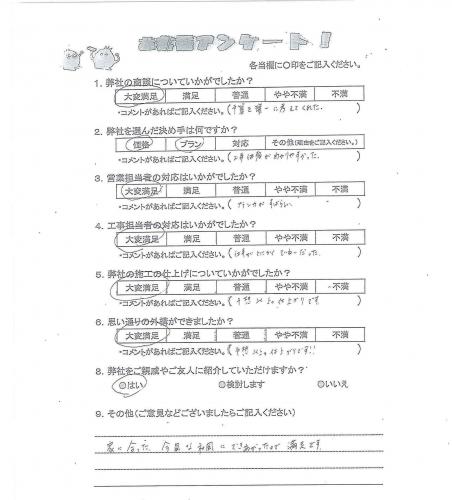 お客様アンケート!
各当欄に〇印をご記入ください。
1. 弊社の商談についていかがでしたか?
大変満足 満足 普通 やや不満 不満
・コメントがあればご記入ください。(予算を第一に考えてくれた。)
2. 弊社を選んだ決め手は何ですか?
価格 プラン 対応 その他(理由をご記入ください。)
・コメントがあればご記入ください。(
3. 営業担当者の対応はいかがでしたか?
大変満足 満足 普通 やや不満 不満
・コメントがあればご記入ください。(プランがすばらしい)
4. 工事担当者の対応はいかがでしたか?
大変満足 満足 普通 やや不満 不満
・コメントがあればご記入ください。(
5. 弊社の施工の仕上げについていかがでしたか?
大変満足 満足 普通 やや不満 不満
・コメントがあればご記入ください。(予想以上の仕上がりです)
6. 思い通りの外構ができましたか?
大変満足 満足 普通 やや不満 不満
・コメントがあればご記入ください。(予想以上の仕上がりです!!)
8. 弊社をご親戚やご友人に紹介していただけますか?
◎はい ◎検討します ◎いいえ
9. その他(ご意見などございましたらご記入ください)
家に合った、今風な和風にできあがったので満足です。